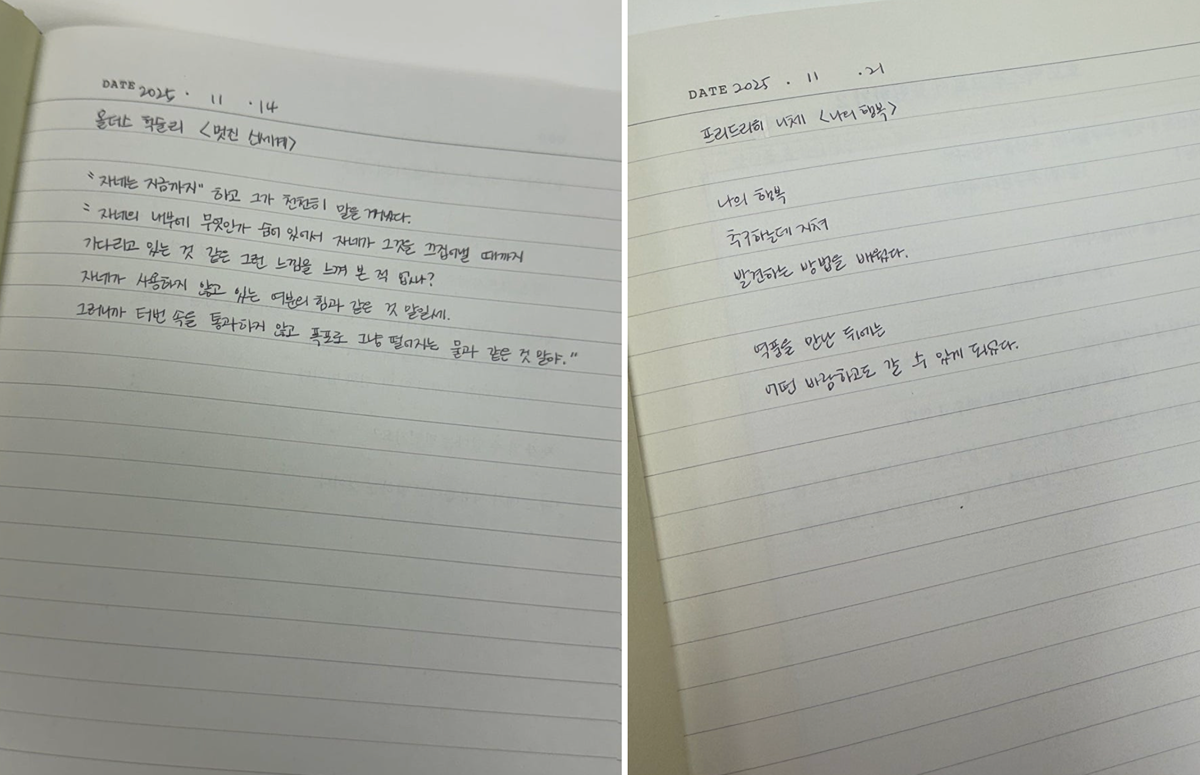 DATE 2025 . 11 . 14
올더스 헉슬리 <멋진 신세계>
"자네는 지금까지" 하고 그가 천천히 말을 꺼냈다.
"자네의 내부에 무엇인가 숨어 있어서 자네가 그것을 끄집어낼 때까지
기다리고 있는 것 같은 그런 느낌을 느껴 본 적 없나?
자네가 사용하지 않고 있는 여분의 힘과 같은 것 말일세.
그러니까 터번 속을 통과하지 않고 폭포로 그냥 떨어지는 물과 같은 것 말야."
DATE 2025 . 11 . 21
프리드리히 니체 <나의 행복>
나의 행복
추구하는데 지쳐
발견하는 방법을 배웠다.
역풍을 만난 뒤에는
어떤 바람하고도 갈 수 있게 되었다.